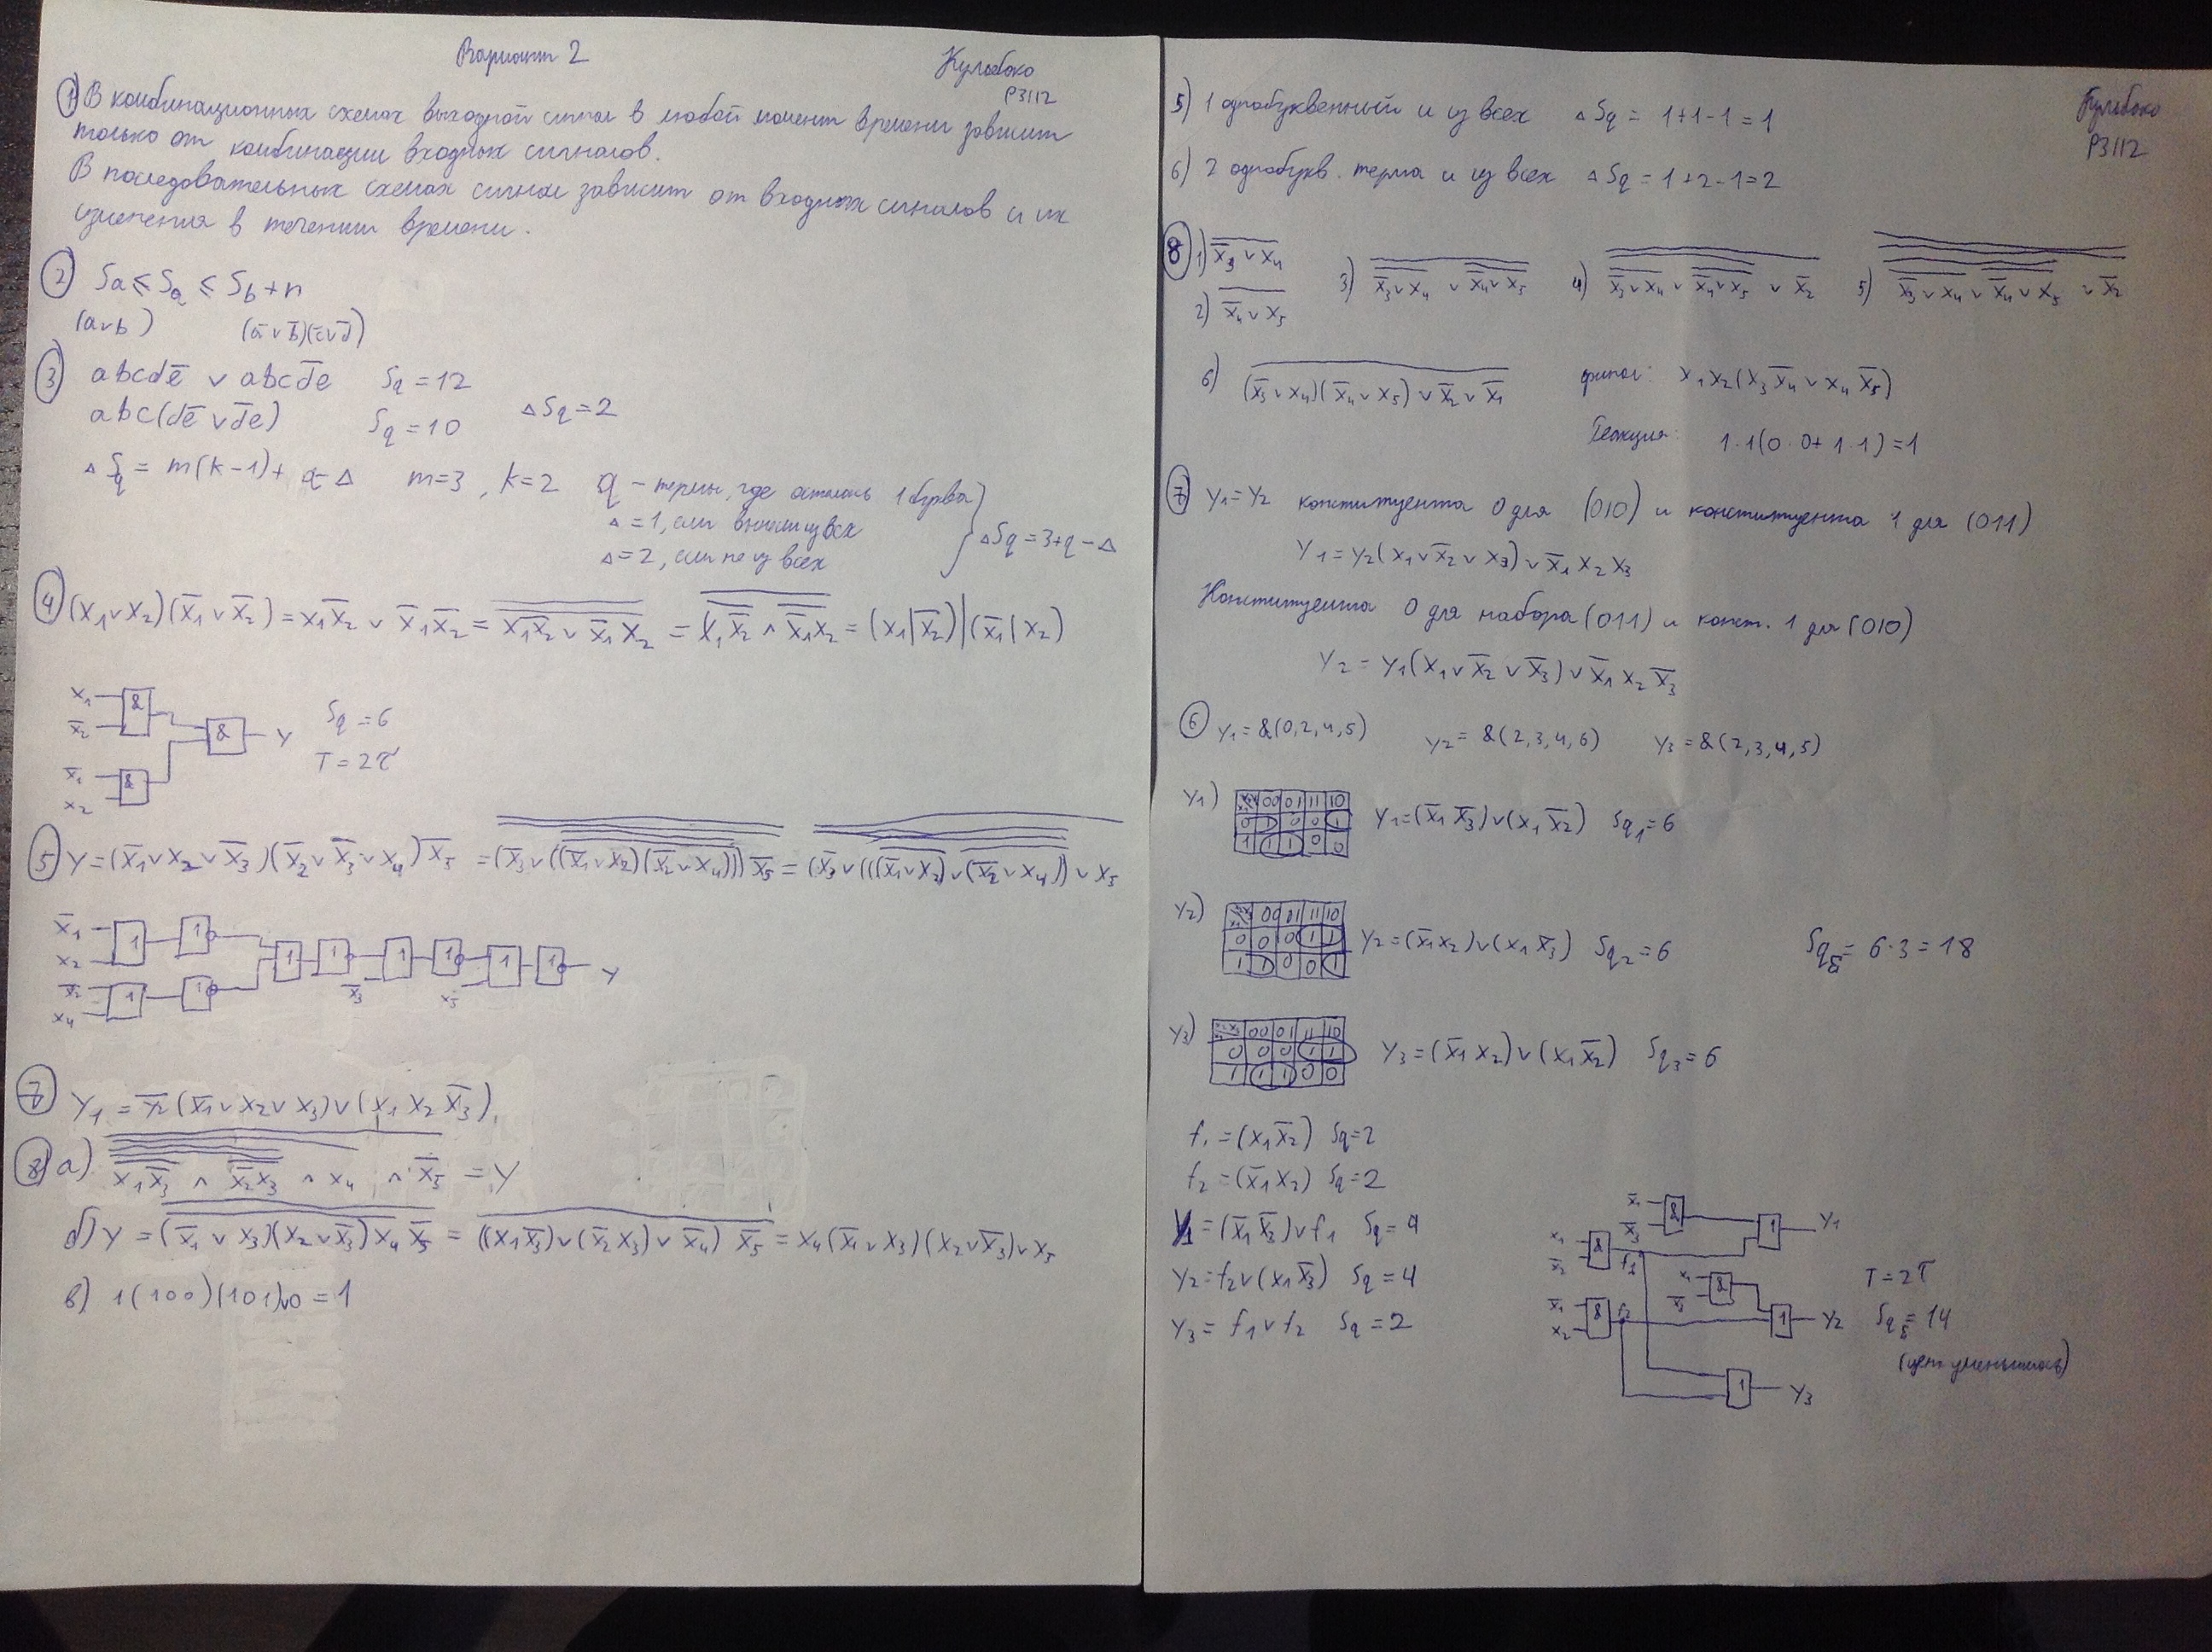 Вариант 2
Кульбако
P3112
① В комбинационных схемах выходной сигнал в любой момент времени зависит
только от комбинации входных сигналов.
В последовательных схемах сигнал зависит от входных сигналов и их
изменения в течении времени.
② Sa ≤ Sq ≤ Sb + n
(a∨b) (a̅∨b̅)(c̅∨d̅)
③ abcde̅ ∨ abcd̅e Sq = 12
abc(de̅ ∨ d̅e) Sq = 10 ΔSq = 2
ΔSq = m(k-1) + q - Δ m=3, k=2 q - термы, где осталась 1 буква
Δ = 1, если вынесли из всех
Δ = 2, если не из всех
ΔSq = 3+q-Δ
④ (x₁∨x₂)(x̅₁∨x̅₂) = x₁x̅₂ ∨ x̅₁x̅₂ = x₁x̅₂ ∨ x̅₁x₂ = x₁x̅₂ ∧ x̅₁x₂ = (x₁|x̅₂)|(x̅₁|x₂)
x₁ & x̅₂ & Y x̅₁ & x₂
Sq = 6
T = 2τ
⑤ Y = (x̅₁∨x₂∨x̅₃)(x̅₂∨x̅₃∨x₄)x̅₅ = (x̅₃∨((x̅₁∨x₂)(x̅₂∨x₄)))x̅₅ = (x̅₃∨(((x̅₁∨x₂)∨(x̅₂∨x₄)))∨x₅
x̅₁ x₂ 1 1 1 1 1 1 1 1 Y
x̅₂ x₄ 1 1 x̅₃ x₅
⑦ Y₁ = y̅₂(x̅₁∨x₂∨x₃)∨(x₁x₂x̅₃)
⑧ а) x₁x̅₃ ∧ x̅₂x₃ ∧ x₄ ∧ x̅₅ = Y
б) Y = (x̅₁∨x₃)(x₂∨x̅₃)x₄x̅₅ = ((x₁x̅₃)∨(x̅₂x₃)∨x̅₄)x̅₅ = x₄(x̅₁∨x₃)(x₂∨x̅₃)∨x₅
в) 1(1∨0)(1∨1)∨0 = 1
Кульбако
P3112
5) 1 однобуквенный и из всех ΔSq = 1+1-1=1
6) 2 однобукв. терма и из всех ΔSq = 1+2-1=2
⑧ 1) x̅₃∨x₄
2) x̅₄∨x₅
3) x̅₃∨x₄ ∨ x̅₄∨x₅
4) x̅₃∨x₄ ∨ x̅₄∨x₅ ∨ x̅₂
5) x̅₃∨x₄ ∨ x̅₄∨x₅ ∨ x̅₂
6) (x̅₃∨x₄)(x̅₄∨x₅)∨x̅₂∨x̅₁ финал: x₁x₂(x₃x̅₄∨x₄x̅₅)
Реакция: 1·1(0·0+1·1)=1
⑦ Y₁=Y₂ конституента 0 для (010) и конституента 1 для (011)
Y₁ = Y₂(x₁∨x̅₂∨x₃)∨x̅₁x₂x₃
Конституента 0 для набора (011) и конст. 1 для (010)
Y₂ = Y₁(x₁∨x̅₂∨x̅₃)∨x̅₁x₂x̅₃
⑥ Y₁=&(0,2,4,5) Y₂=&(2,3,4,6) Y₃=&(2,3,4,5)
Y₁) 00 01 11 10
0 1 0 0 1
1 1 1 0 0
Y₁=(x̅₁x̅₃)∨(x₁x̅₂) Sq₁=6
Y₂) 00 01 11 10
0 0 0 1 1
1 1 0 0 1
Y₂=(x̅₁x₂)∨(x₁x̅₃) Sq₂=6
Sq = 6·3 = 18
Y₃) 00 01 11 10
0 0 0 1 1
1 1 1 0 0
Y₃=(x̅₁x₂)∨(x₁x̅₂) Sq₃=6
f₁=(x₁x̅₂) Sq=2
f₂=(x̅₁x₂) Sq=2
Y₁=(x̅₁x̅₃)∨f₁ Sq=4
Y₂=f₂∨(x₁x̅₃) Sq=4
Y₃=f₁∨f₂ Sq=2
x̅₁ x̅₃ & 1 Y₁
x₁ x̅₂ & f₁
x₁ x̅₃ &
x̅₁ x₂ & f₂ 1 Y₂
1 Y₃
T=2τ
Sq=14
(цена уменьшилась)